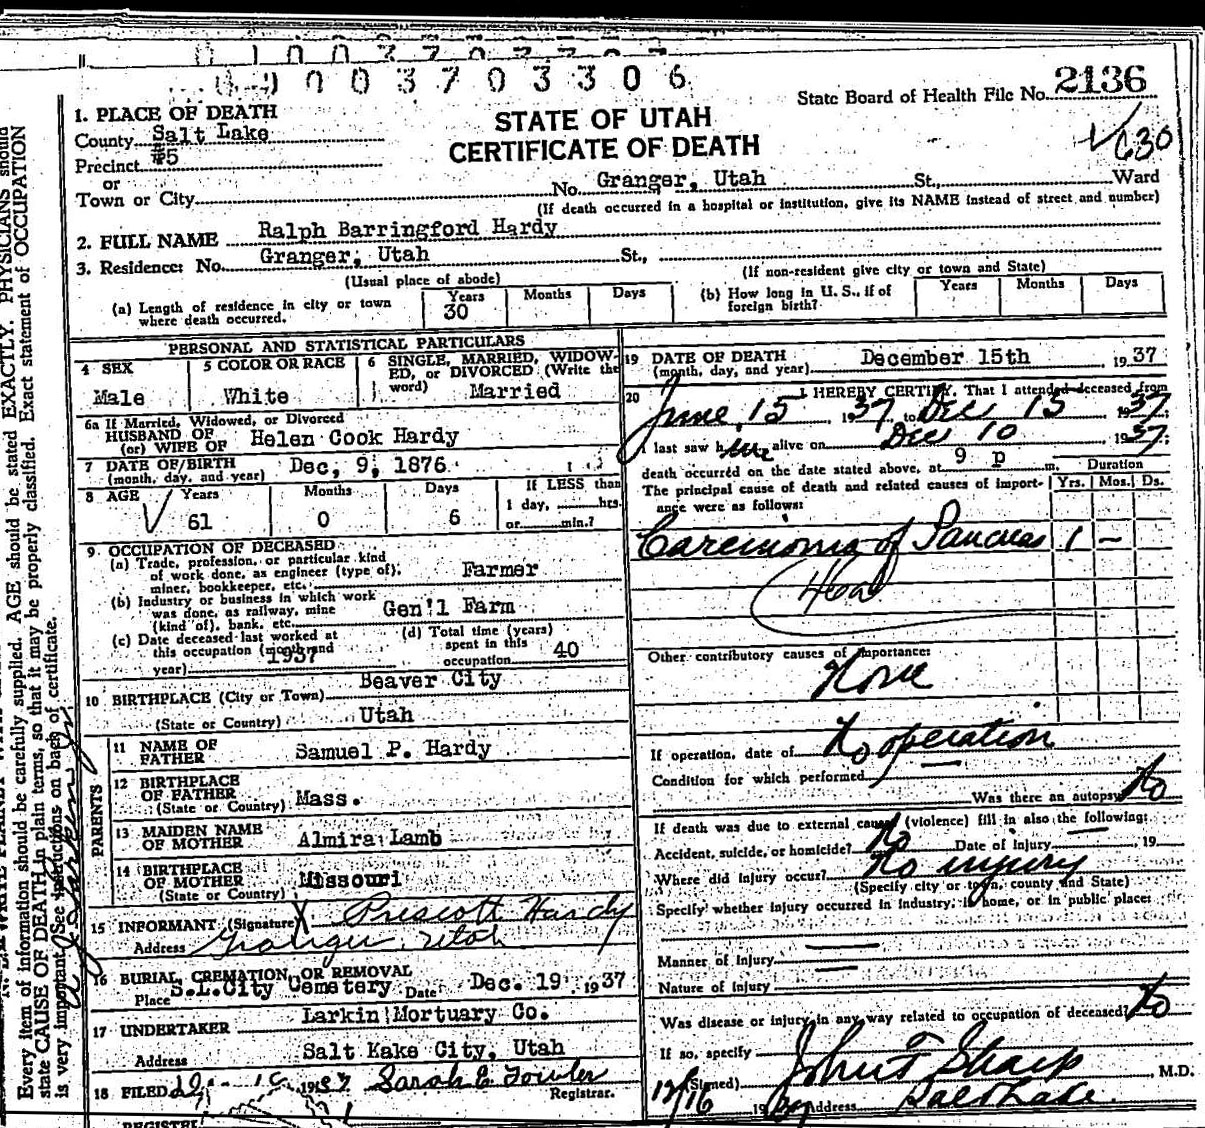 0 0 3 7 0 3 3 0 6
State Board of Health File No. 2136
STATE OF UTAH
CERTIFICATE OF DEATH
1. PLACE OF DEATH
County Salt Lake
Precinct #5
or
Town or City
No. Granger, Utah St., Ward
(If death occurred in a hospital or institution, give its NAME instead of street and number)
2. FULL NAME Ralph Barringford Hardy
3. Residence: No. Granger, Utah St.,
(Usual place of abode) (If non-resident give city or town and State)
(a) Length of residence in city or town where death occurred. Years 30 Months Days
(b) How long in U. S., if of foreign birth? Years Months Days
PERSONAL AND STATISTICAL PARTICULARS
4 SEX
Male
5 COLOR OR RACE
White
6 SINGLE, MARRIED, WIDOW-
ED, or DIVORCED (Write the
word) Married
6a If Married, Widowed, or Divorced
HUSBAND OF
(or) WIFE OF Helen Cook Hardy
7 DATE OF BIRTH
(month, day, and year) Dec, 9, 1876
8 AGE Years 61 Months 0 Days 6
If LESS than
1 day, hrs.
or min.?
9. OCCUPATION OF DECEASED
(a) Trade, profession, or particular kind
of work done, as engineer (type of),
miner, bookkeeper, etc. Farmer
(b) Industry or business in which work
was done, as railway, mine
(kind of), bank, etc. Gen'l Farm
(c) Date deceased last worked at
this occupation (month and
year) 1937
(d) Total time (years)
spent in this
occupation 40
10 BIRTHPLACE (City or Town) Beaver City
(State or Country) Utah
PARENTS
11 NAME OF
FATHER Samuel P. Hardy
12 BIRTHPLACE
OF FATHER
(State or Country) Mass.
13 MAIDEN NAME
OF MOTHER Almira Lamb
14 BIRTHPLACE
OF MOTHER
(State or Country) Missouri
15 INFORMANT (Signature) X Prescott Hardy
Address Granger, Utah
16 BURIAL, CREMATION, OR REMOVAL
Place S.L.City Cemetery Date Dec. 19 1937
17 UNDERTAKER Larkin Mortuary Co.
Address Salt Kake City, Utah
18 FILED 1937 Sarah E. Fowler
Registrar.
19 DATE OF DEATH
(month, day, and year) December 15th, 1937
20 I HEREBY CERTIFY, That I attended deceased from
June 15, 1937, to Dec 15, 1937;
I last saw him alive on Dec 10 1937;
death occurred on the date stated above, at 9 p m. Duration
The principal cause of death and related causes of import-
ance were as follows: Yrs. Mos. Ds.
Carcinoma of Pancreas 1 -
Other contributory causes of importance:
None
If operation, date of No operation
Condition for which performed
Was there an autopsy No
If death was due to external cause (violence) fill in also the following:
Accident, suicide, or homicide? No Date of Injury , 19
Where did injury occur? No injury
(Specify city or town, county and State)
Specify whether injury occurred in industry, in home, or in public place:
Manner of Injury
Nature of Injury
Was disease or injury in any way related to occupation of deceased? No
If so, specify
(Signed) John F Sharp, M.D.
12/16 1937 Address Salt Lake.
Every item of information should be carefully supplied. AGE should be stated EXACTLY. PHYSICIANS should
state CAUSE OF DEATH in plain terms, so that it may be properly classified. Exact statement of OCCUPATION
is very important. See instructions on back of certificate.